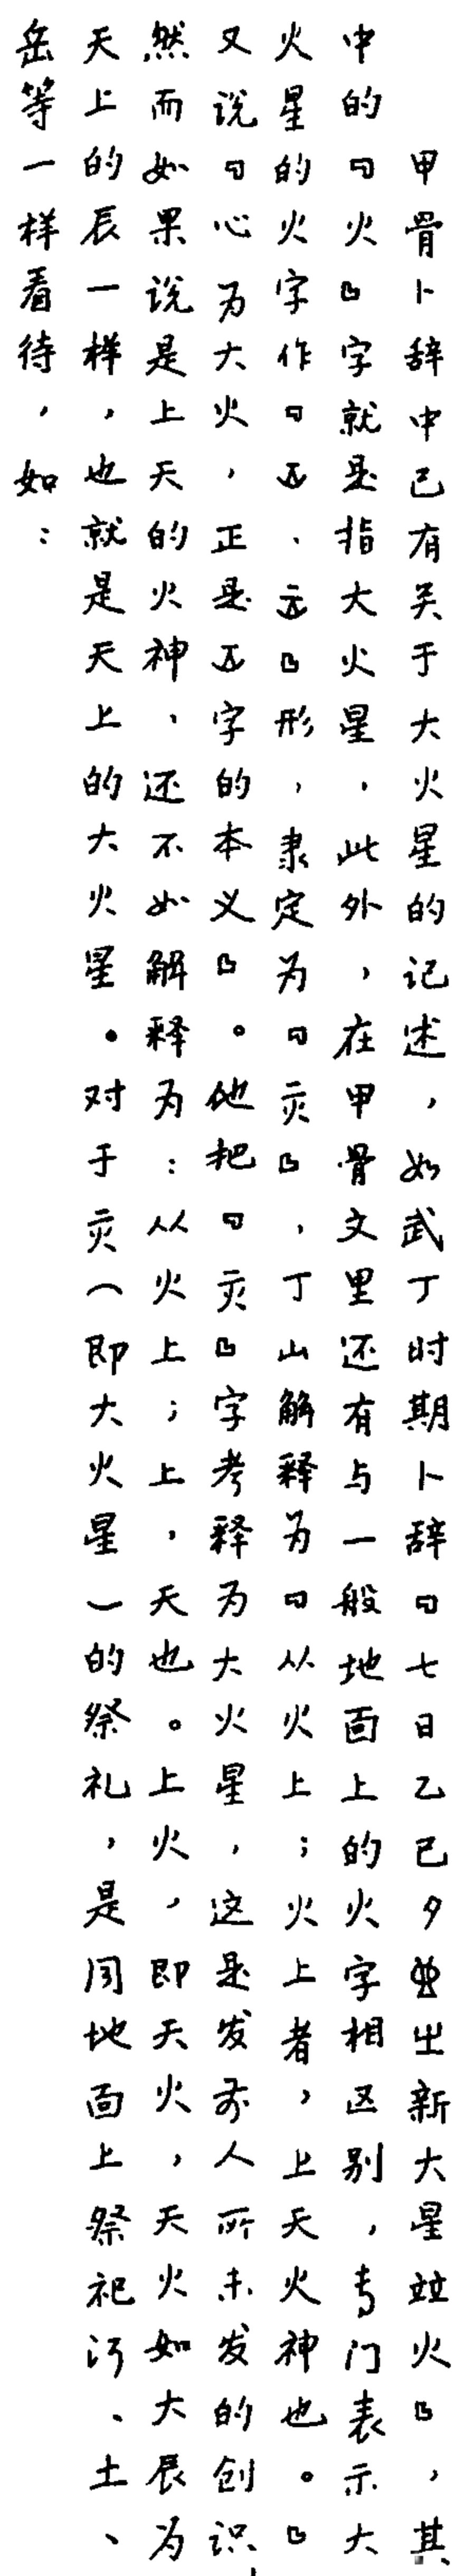 甲骨卜辞中已有关于大火星的记述，如武丁时期卜辞『七日乙巳夕㞢新大星竝火』，其
中的『火』字就是指大火星，此外，在甲骨文里还有与一般地面上的火字相区别，专门表示大
火星的火字作『、』形，隶定为『』，丁山解释为『从火上；火上者，上天火神也。』
又说『心为大火，正是字的本义』。他把『』字考释为大火星，这是发前人所未发的创识，
然而如果说是上天的火神，还不如解释为：从火上；上，天也。上火，即天火，天火如大辰为
天上的辰一样，也就是天上的大火星。对于（即大火星）的祭礼，是同地面上祭祀河、土、
岳等一样看待，如：